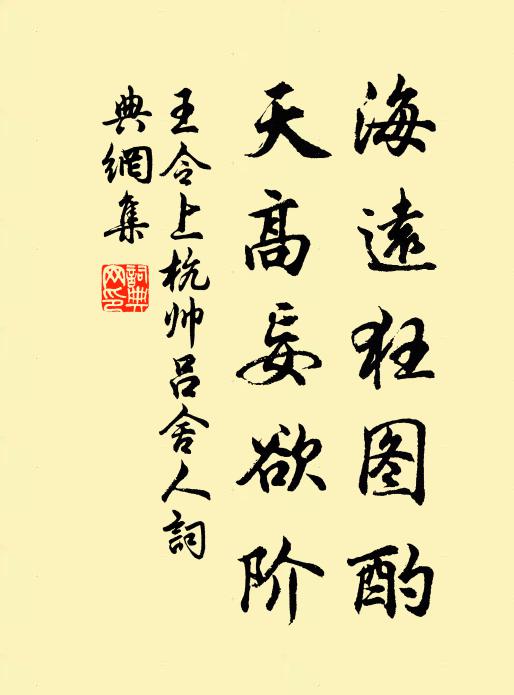 海遠狂图酌
天高妄欲阶
王令上杭帅吕舍人詞
典網集
詞典网印